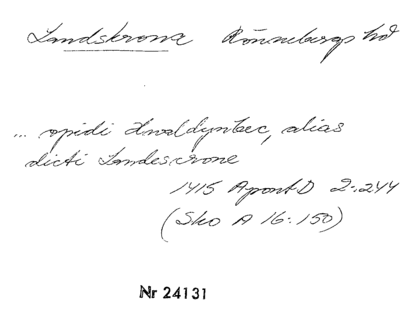 Landskrona Rönnebergs hd
... opidi Hwaldyntec, alias
dicti Landescrone
1415 ApontD 2:244
(Sko A 16:150)
Nr 24131